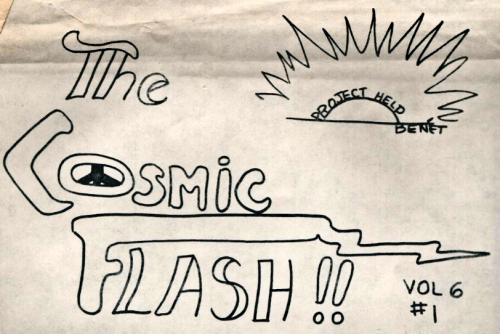 The
PROJECT HELP
BENÉT
COSMIC
FLASH!!
VOL 6
#1